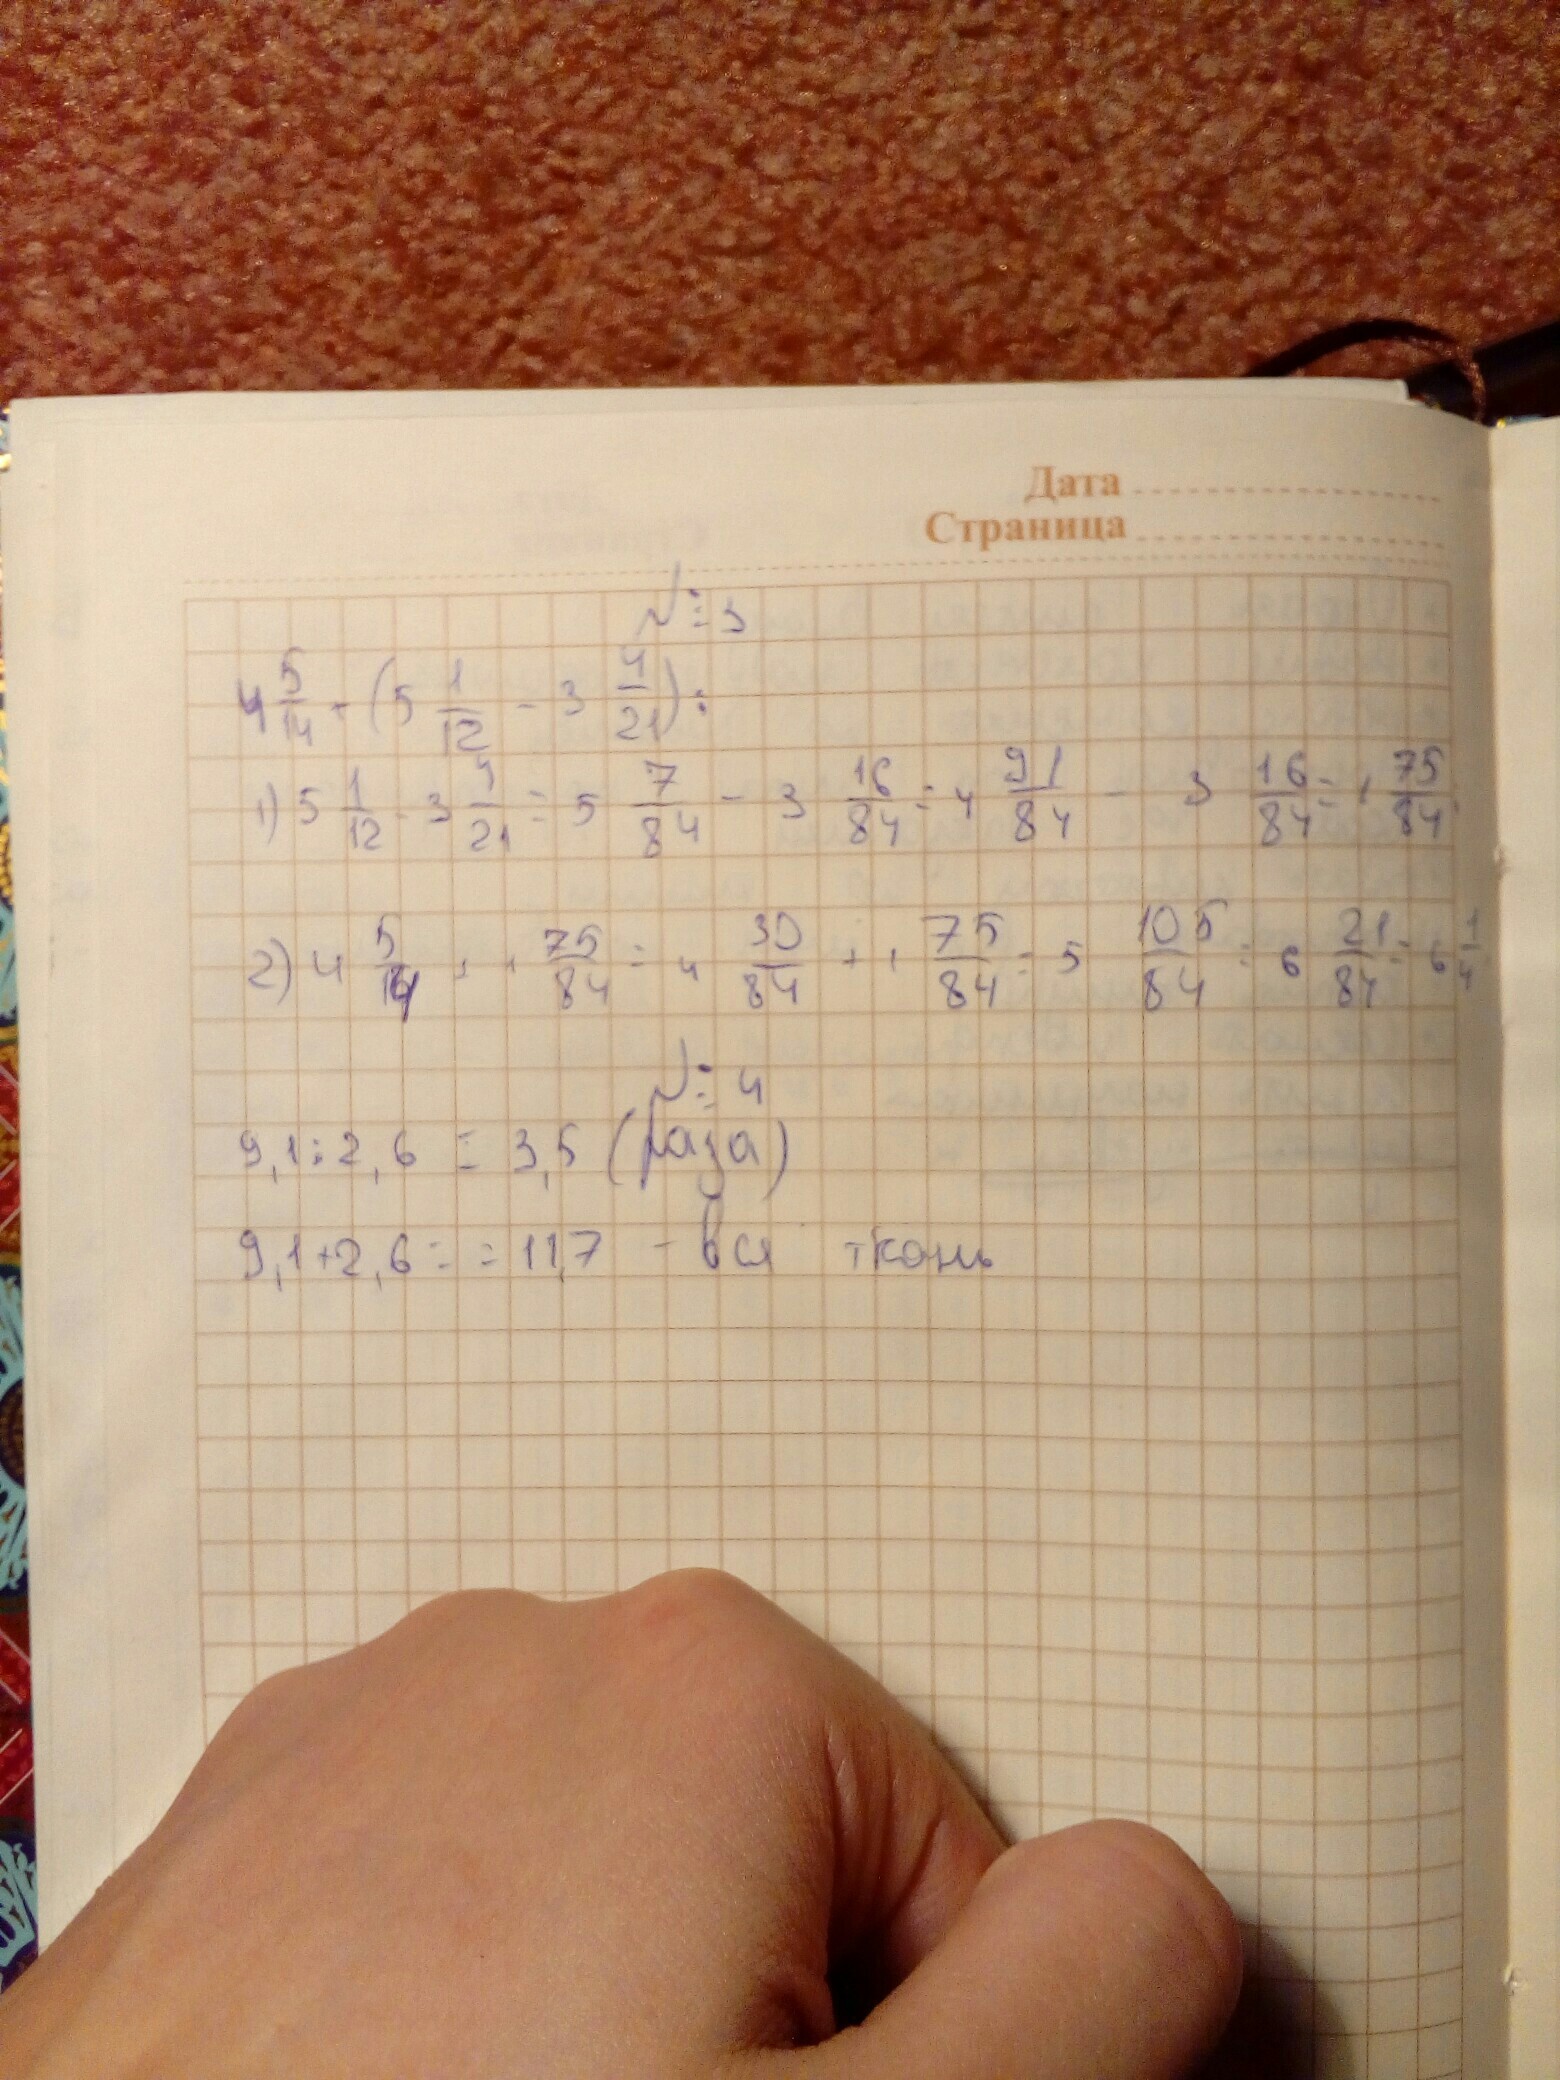 Дата
Страница
№ 3
4 5/14 + (5 1/12 - 3 4/21) :
1) 5 1/12 - 3 4/21 = 5 7/84 - 3 16/84 = 4 91/84 - 3 16/84 = 1 75/84
2) 4 5/14 + 1 75/84 = 4 30/84 + 1 75/84 = 5 105/84 = 6 21/84 = 6 1/4
№ 4
9,1 : 2,6 = 3,5 (раза)
9,1 + 2,6 = = 11,7 - вся ткань